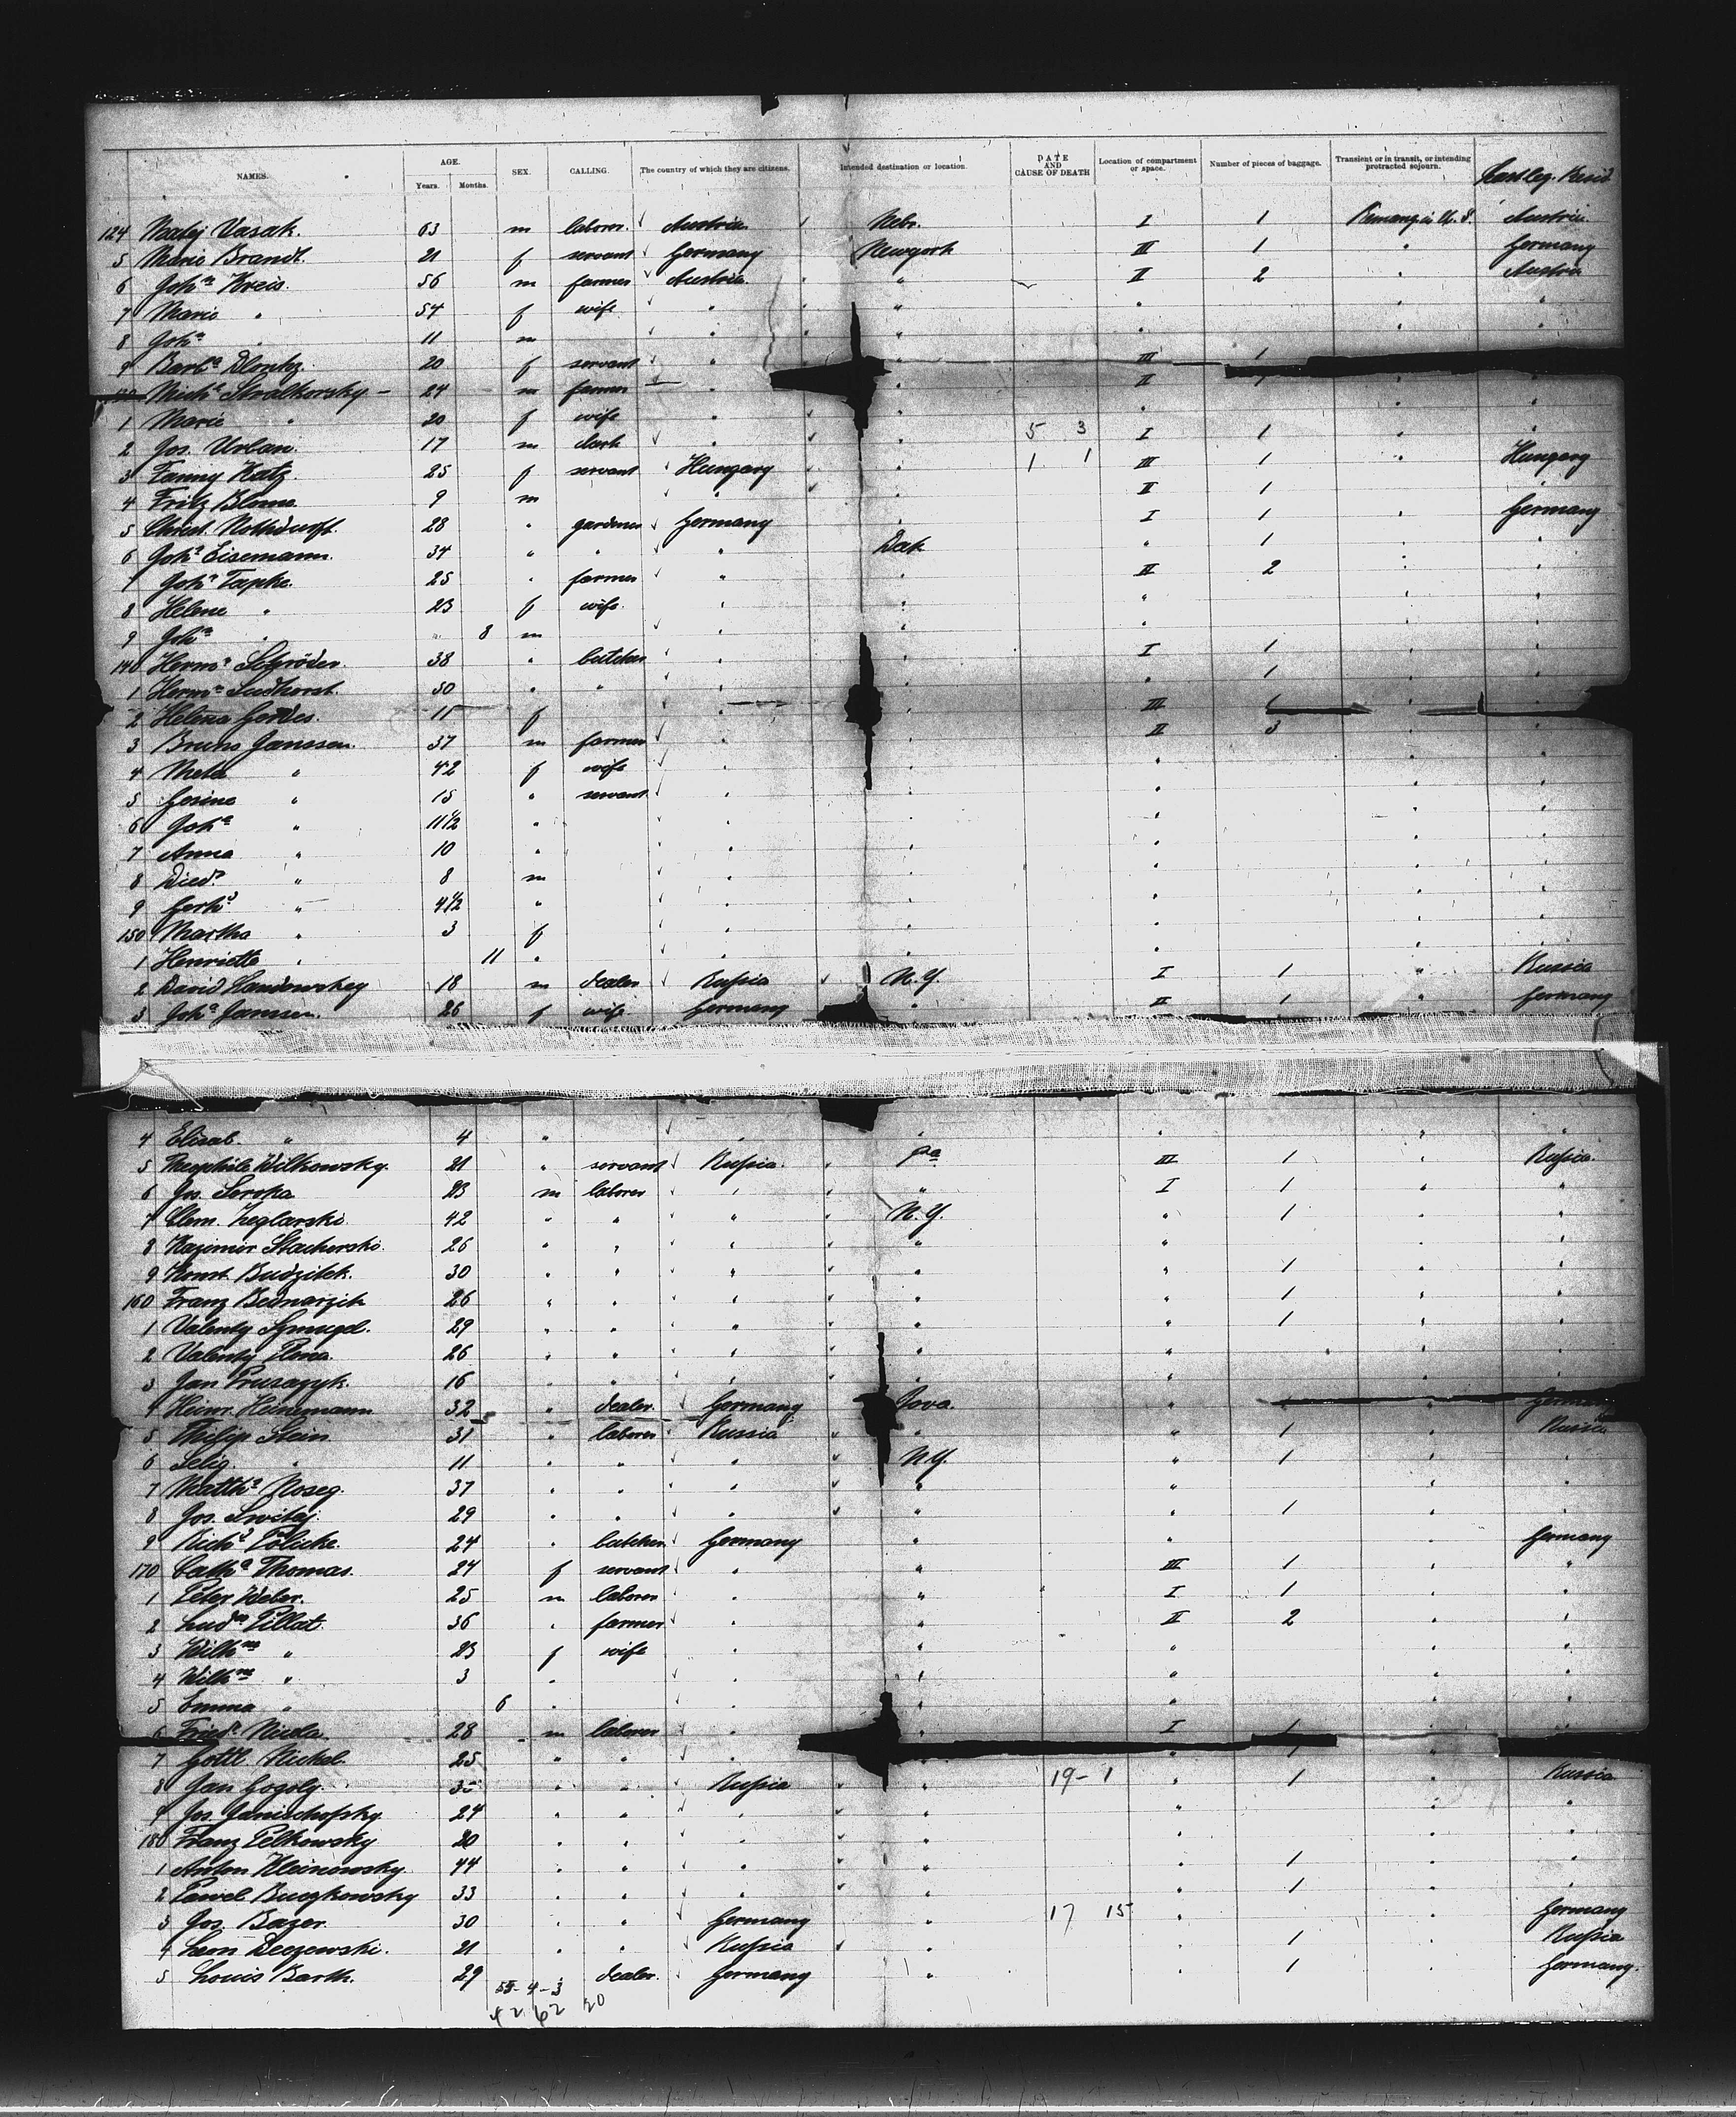 NAMES. AGE. Years. Months. SEX. CALLING. The country of which they are citizens. Intended destination or location. DATE AND CAUSE OF DEATH Location of compartment or space. Number of pieces of baggage. Transient or in transit, or intending protracted sojourn. Last leg. Resid.
124 Matej Vasak. 63 m laborer. Austria Nebr. I 1 Remang in U.S. Austria
5 Marie Brandt. 21 f servant Germany Newyork III 1 " Germany
6 Joh.n Kreis. 56 m farmer Austria " II 2 " Austria
7 Marie " 54 f wife " " " " "
8 Joh.n " 11 m " " " " "
9 Barb.a 20 f servant " " III 1 " "
Mich.l Stralkorsky - 24 m farmer " " II " "
1 Marie " 20 f wife " " " " "
2 Jos. Urban. 17 m clerk " " 5 3 I 1 " "
3 Fanny Katz. 25 f servant Hungary " 1 1 III 1 " Hungary
4 Fritz Blome 9 m " " II 1 "
5 Christ. Nothdurft. 28 " gardener Germany " I 1 " Germany
6 Joh.n Eisemann. 34 " " " Dak " 1 " "
7 Joh.n Tapke. 25 " farmer " " II 2 " "
8 Helene " 23 f wife. " " " " "
9 Joh.n " " 8 m " " " " "
140 Herm.n Schröder. 38 " butcher " " I 1 " "
1 Herm.n Sudhorst. 50 " " " " " 1 " "
2 Helena Gerdes. 11 f " " III 1 " "
3 Bruno Janssen. 37 m farmer " " II 3 " "
4 Meta " 42 f wife " " " " "
5 Gesine " 15 " servant " " " " "
6 Joh.a " 11 1/2 " " " " " "
7 Anna " 10 " " " " " "
8 Died. " 8 m " " " " "
9 Gerh.d " 4 1/2 " " " " " "
150 Martha " 3 f " " " " "
1 Henriette " 11 " " " " " "
2 David Landowskey 18 m dealer Rußia N.Y. I 1 " Russia
3 Joh.a Janssen. 26 f wife Germany " II 1 " Germany
4 Elisab. " 4 " " " " " "
5 Theophila Wilkowsky. 21 " servant Rußia. Pa III 1 " Rußia.
6 Jos. Seroka 23 m laborer " " I 1 " "
7 Clem. Zeglarski. 42 " " " N.Y. " 1 " "
8 Kazimir Stachorski. 26 " " " " " " "
9 Konst. Budzilek. 30 " " " " " 1 " "
160 Franz Bednarzik 26 " " " " " 1 " "
1 Valenty Szmugel. 29 " " " " " 1 " "
2 Valenty 26 " " " " " " " "
3 Jan Prusazyk. 16 " " " " " " "
4 Heinr. Heinemann 32 " dealer. Germany Iova. " " Germany
5 Philip Stein 31 " laborer Russia " " 1 " Russia
6 Selig. " 11 " " " N.Y. " 1 " "
7 Matth.s Noseg. 37 " " " " " " "
8 Jos. Switaj. 29 " " " " " 1 " "
9 Rich.d Pölicke. 24 " butcher Germany " " Germany
170 Cath.a Thomas. 24 f servant " " III 1 " "
1 Peter Weber. 25 m laborer " " I 1 " "
2 Lud.w Pillat. 36 " farmer " " II 2 " "
3 Wilh.ne " 23 f wife " " " " "
4 Wilh.ne " 3 " " " " " "
5 Emma " 6 " " " " " "
6 Fried. 28 m laborer " " I 1 "
7 Gottl. Nickel 25 " " " " " 1 "
8 Jan Gogoly. 35 " " Rußia " 19 - 1 " 1 Russia
9 Jos. Janischofsky. 24 " " " " " " "
180 Franz Pelkowsky 20 " " " " " " "
1 Anton Kleinowsky. 44 " " " " " 1 " "
2 Pawel Buczkowsky 33 " " " " " 1 " "
3 Jos. Bazer 30 " " Germany " 17 15 " " Germany
4 Leon Deczewski. 21 " " Rußia " " 1 " Rußia
5 Louis Barth. 29 " dealer. Germany " " 1 " Germany.
55 - 4 - 3
42 62 20